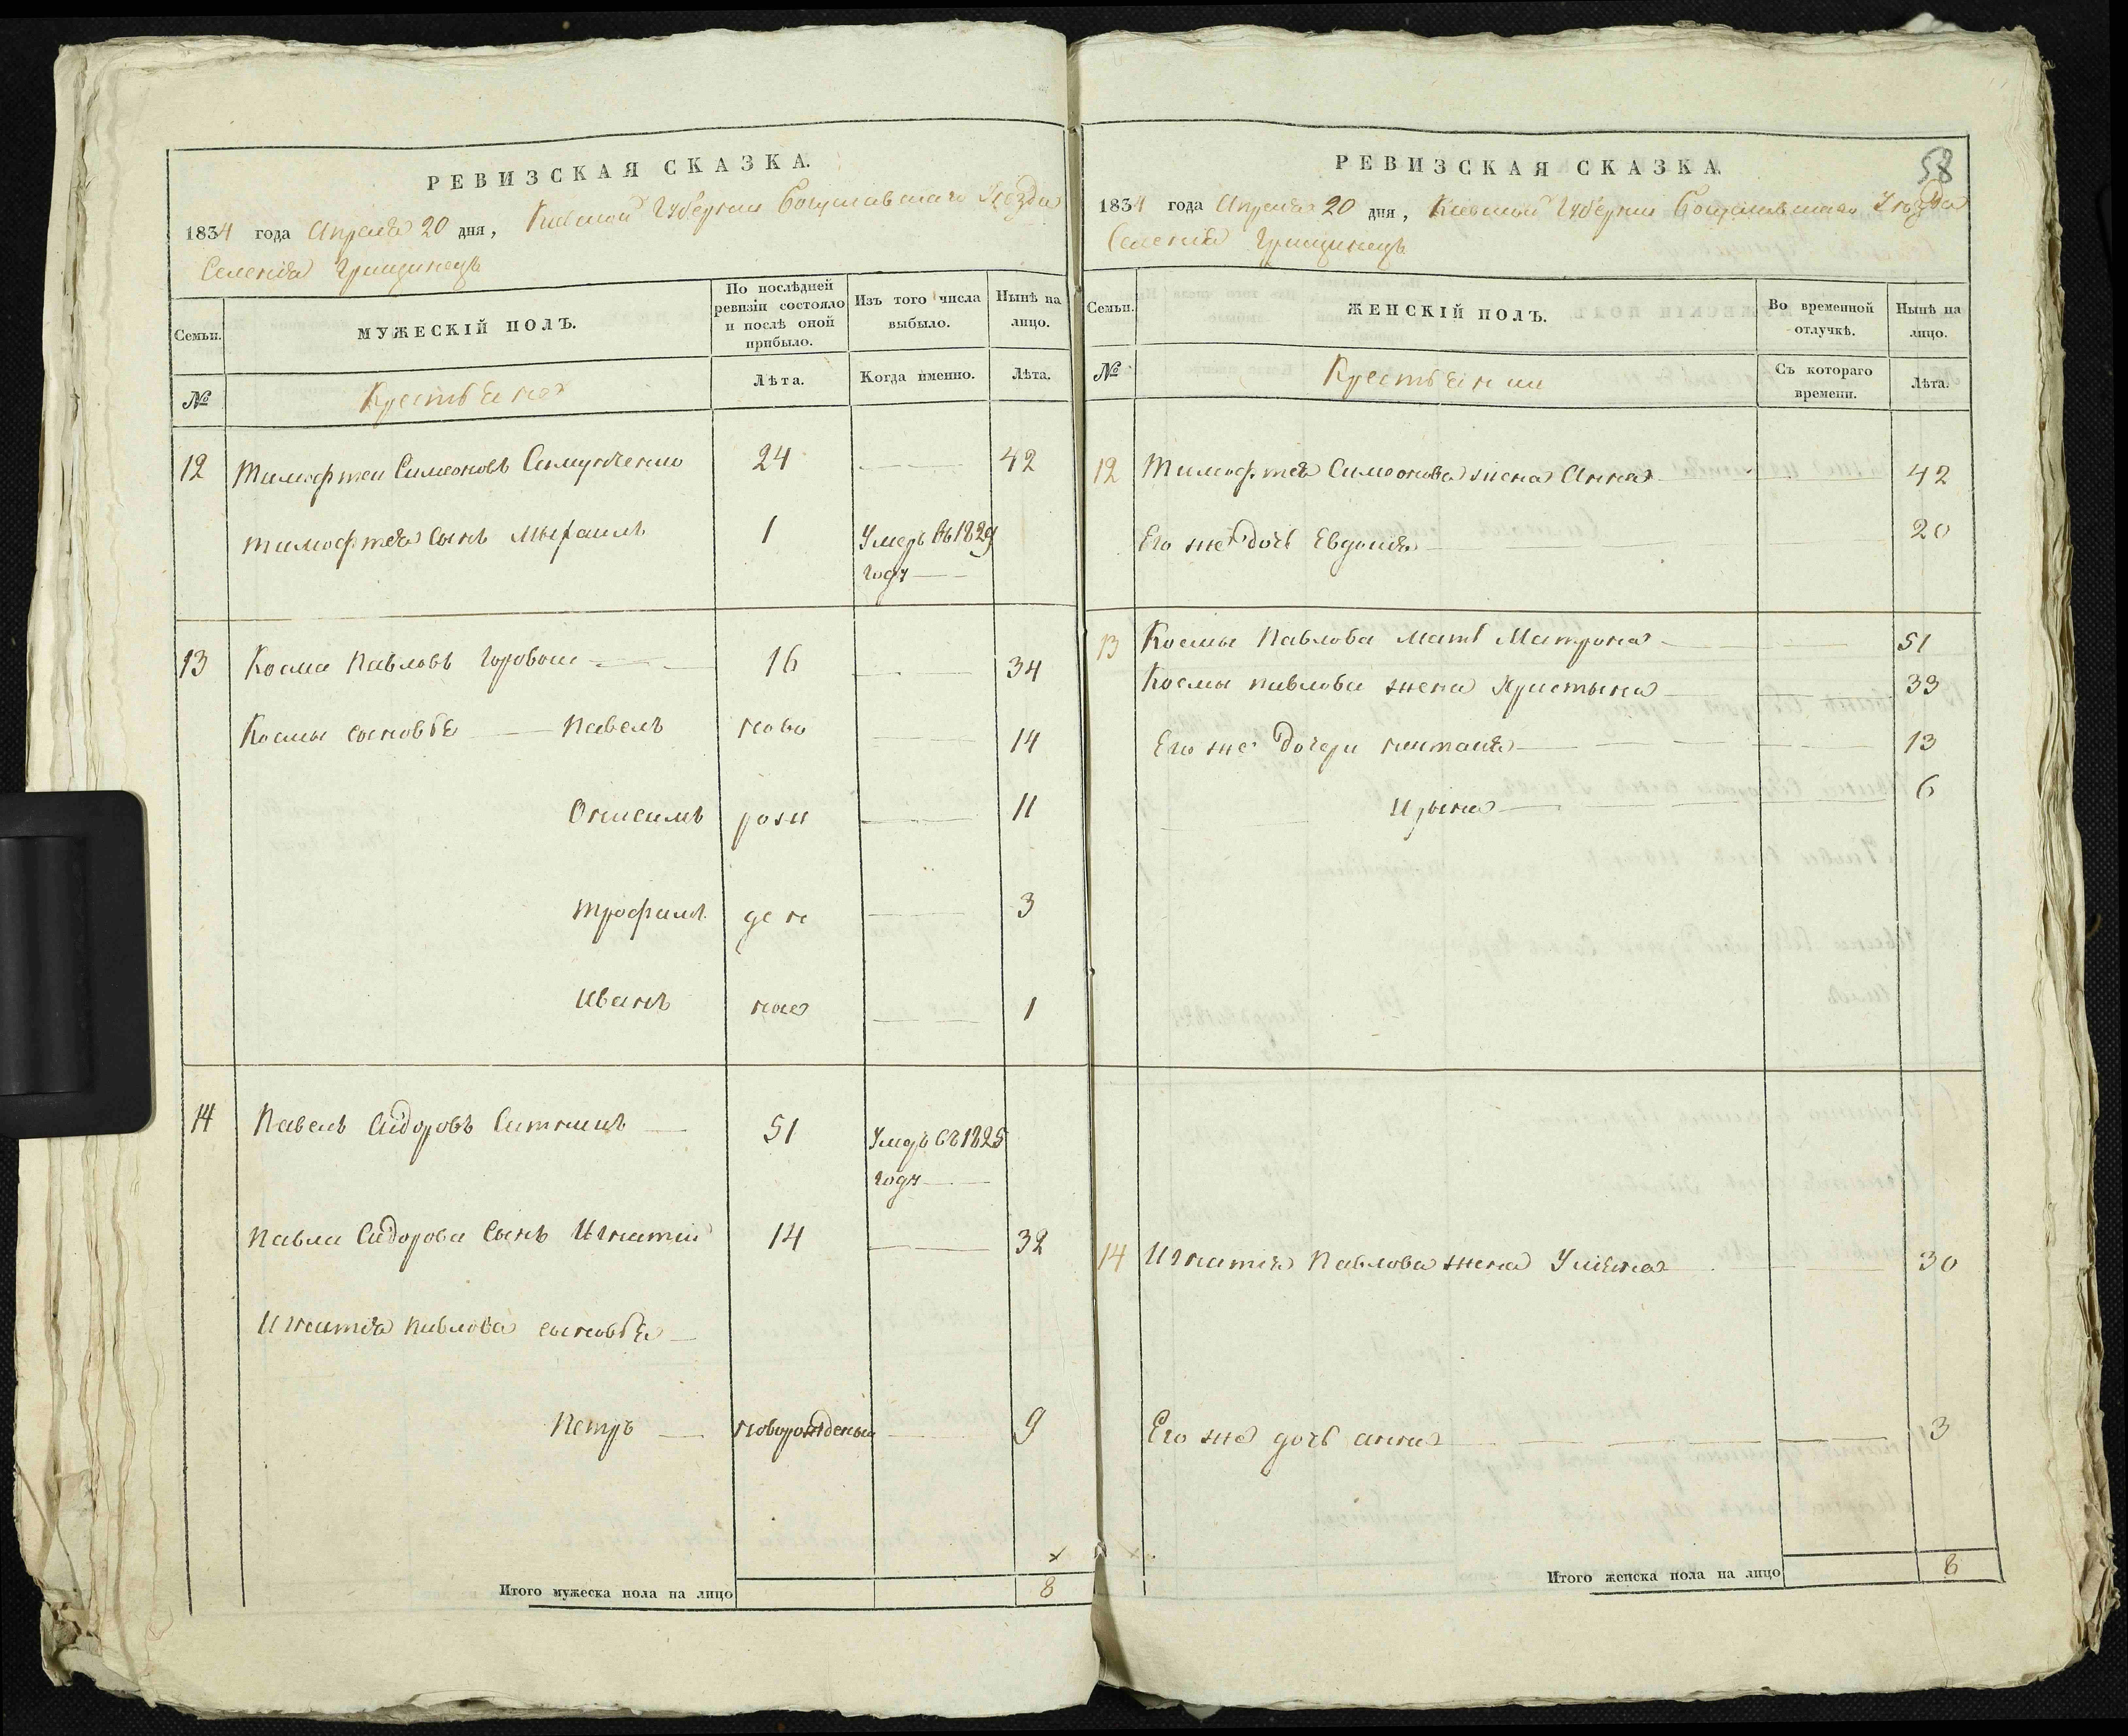 РЕВИЗСКАЯ СКАЗКА.
1834 года Апреля 20 дня, Киевской Губернии Богуславскаго Уѣзда
Селения Грищинецъ
Семьи.
МУЖЕСКІЙ ПОЛЪ.
По послѣдней ревизіи состояло и послѣ оной прибыло.
Изъ того числа выбыло.
Нынѣ на лицо.
№
Крестьяне
Лѣта.
Когда именно.
Лѣта.
12 Тимофтей Симеоновъ 24 42
тимофтея сынъ Мыхаилъ 1 Умеръ въ 1829
году
13 Косма Павловъ Горовой 16 34
Космы сыновья Павелъ ново 14
Онисимъ рож 11
трофимъ ден 3
Иванъ ные 1
14 Павелъ Сидоровъ Ситникъ 51 Умеръ въ 1825
году
Павла Сидорова Сынъ Игнатий 14 32
Игнатия Павлова сыновья
Петръ новорожденый 9
Итого мужеска пола на лицо 8
58
РЕВИЗСКАЯ СКАЗКА.
1834 года Апреля 20 дня, Киевской Губернии Богуславскаго Уѣзда
Селения Грищинецъ
Семьи.
ЖЕНСКІЙ ПОЛЪ.
Во временной отлучкѣ.
Нынѣ на лицо.
№
Крестьянки
Съ котораго времени.
Лѣта.
12 Тимофтея Симеонова жена Анна 42
Его же дочь Евдокия 20
13 Космы Павлова мать Матрона 51
Космы павлова жена Христына 33
Его же дочери 13
Ирына 6
14 Игнатия Павлова жена Улияна 30
Его же дочь анна 3
Итого женска пола на лицо 8